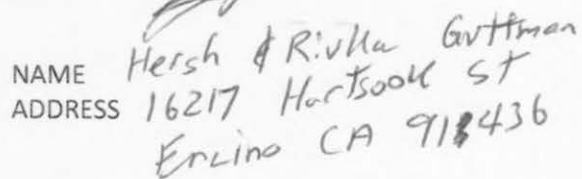 NAME Hersh & Rivka Guttman
ADDRESS 16217 Hartsook ST
Encino CA 91436